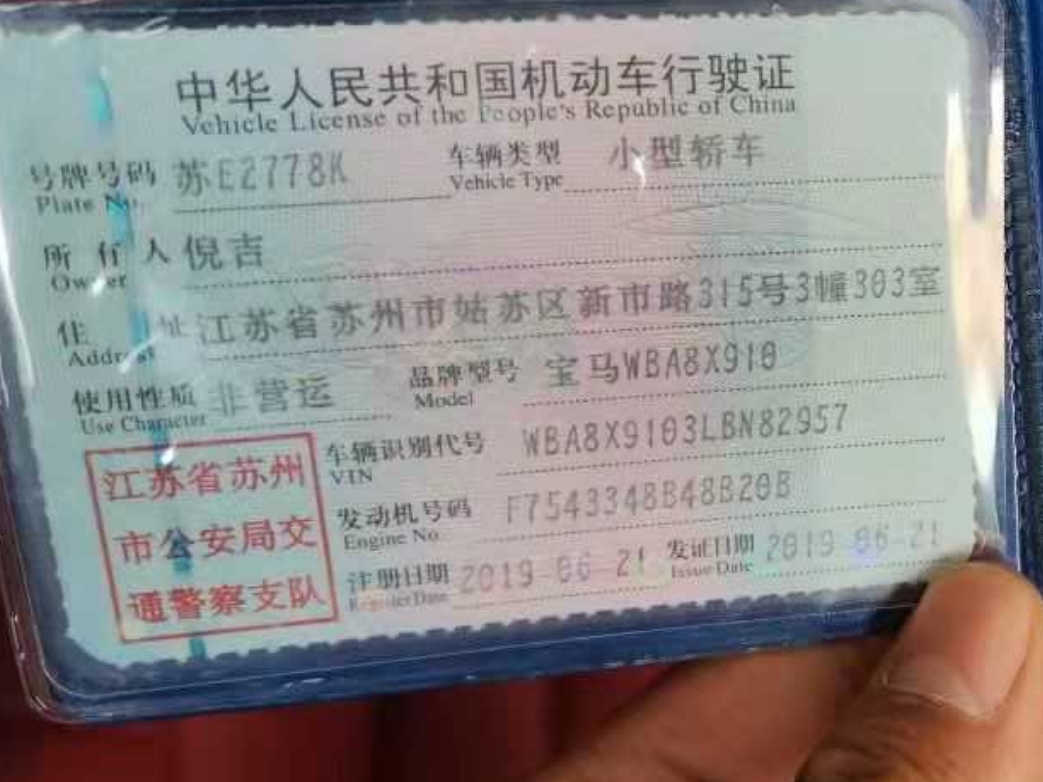 中华人民共和国机动车行驶证
Vehicle License of the People's Republic of China
号牌号码 苏E2778K 车辆类型 小型轿车
Plate No. Vehicle Type
所有人 倪吉
Owner
住址 江苏省苏州市姑苏区新市路315号3幢303室
Address
使用性质 非营运 品牌型号 宝马WBA8X910
Use Character Model
车辆识别代号 WBA8X9103LBN82957
VIN
发动机号码 F7543348B48B20B
Engine No.
注册日期 2019-06-21 发证日期 2019-06-21
Register Date Issue Date
江苏省苏州
市公安局交
通警察支队